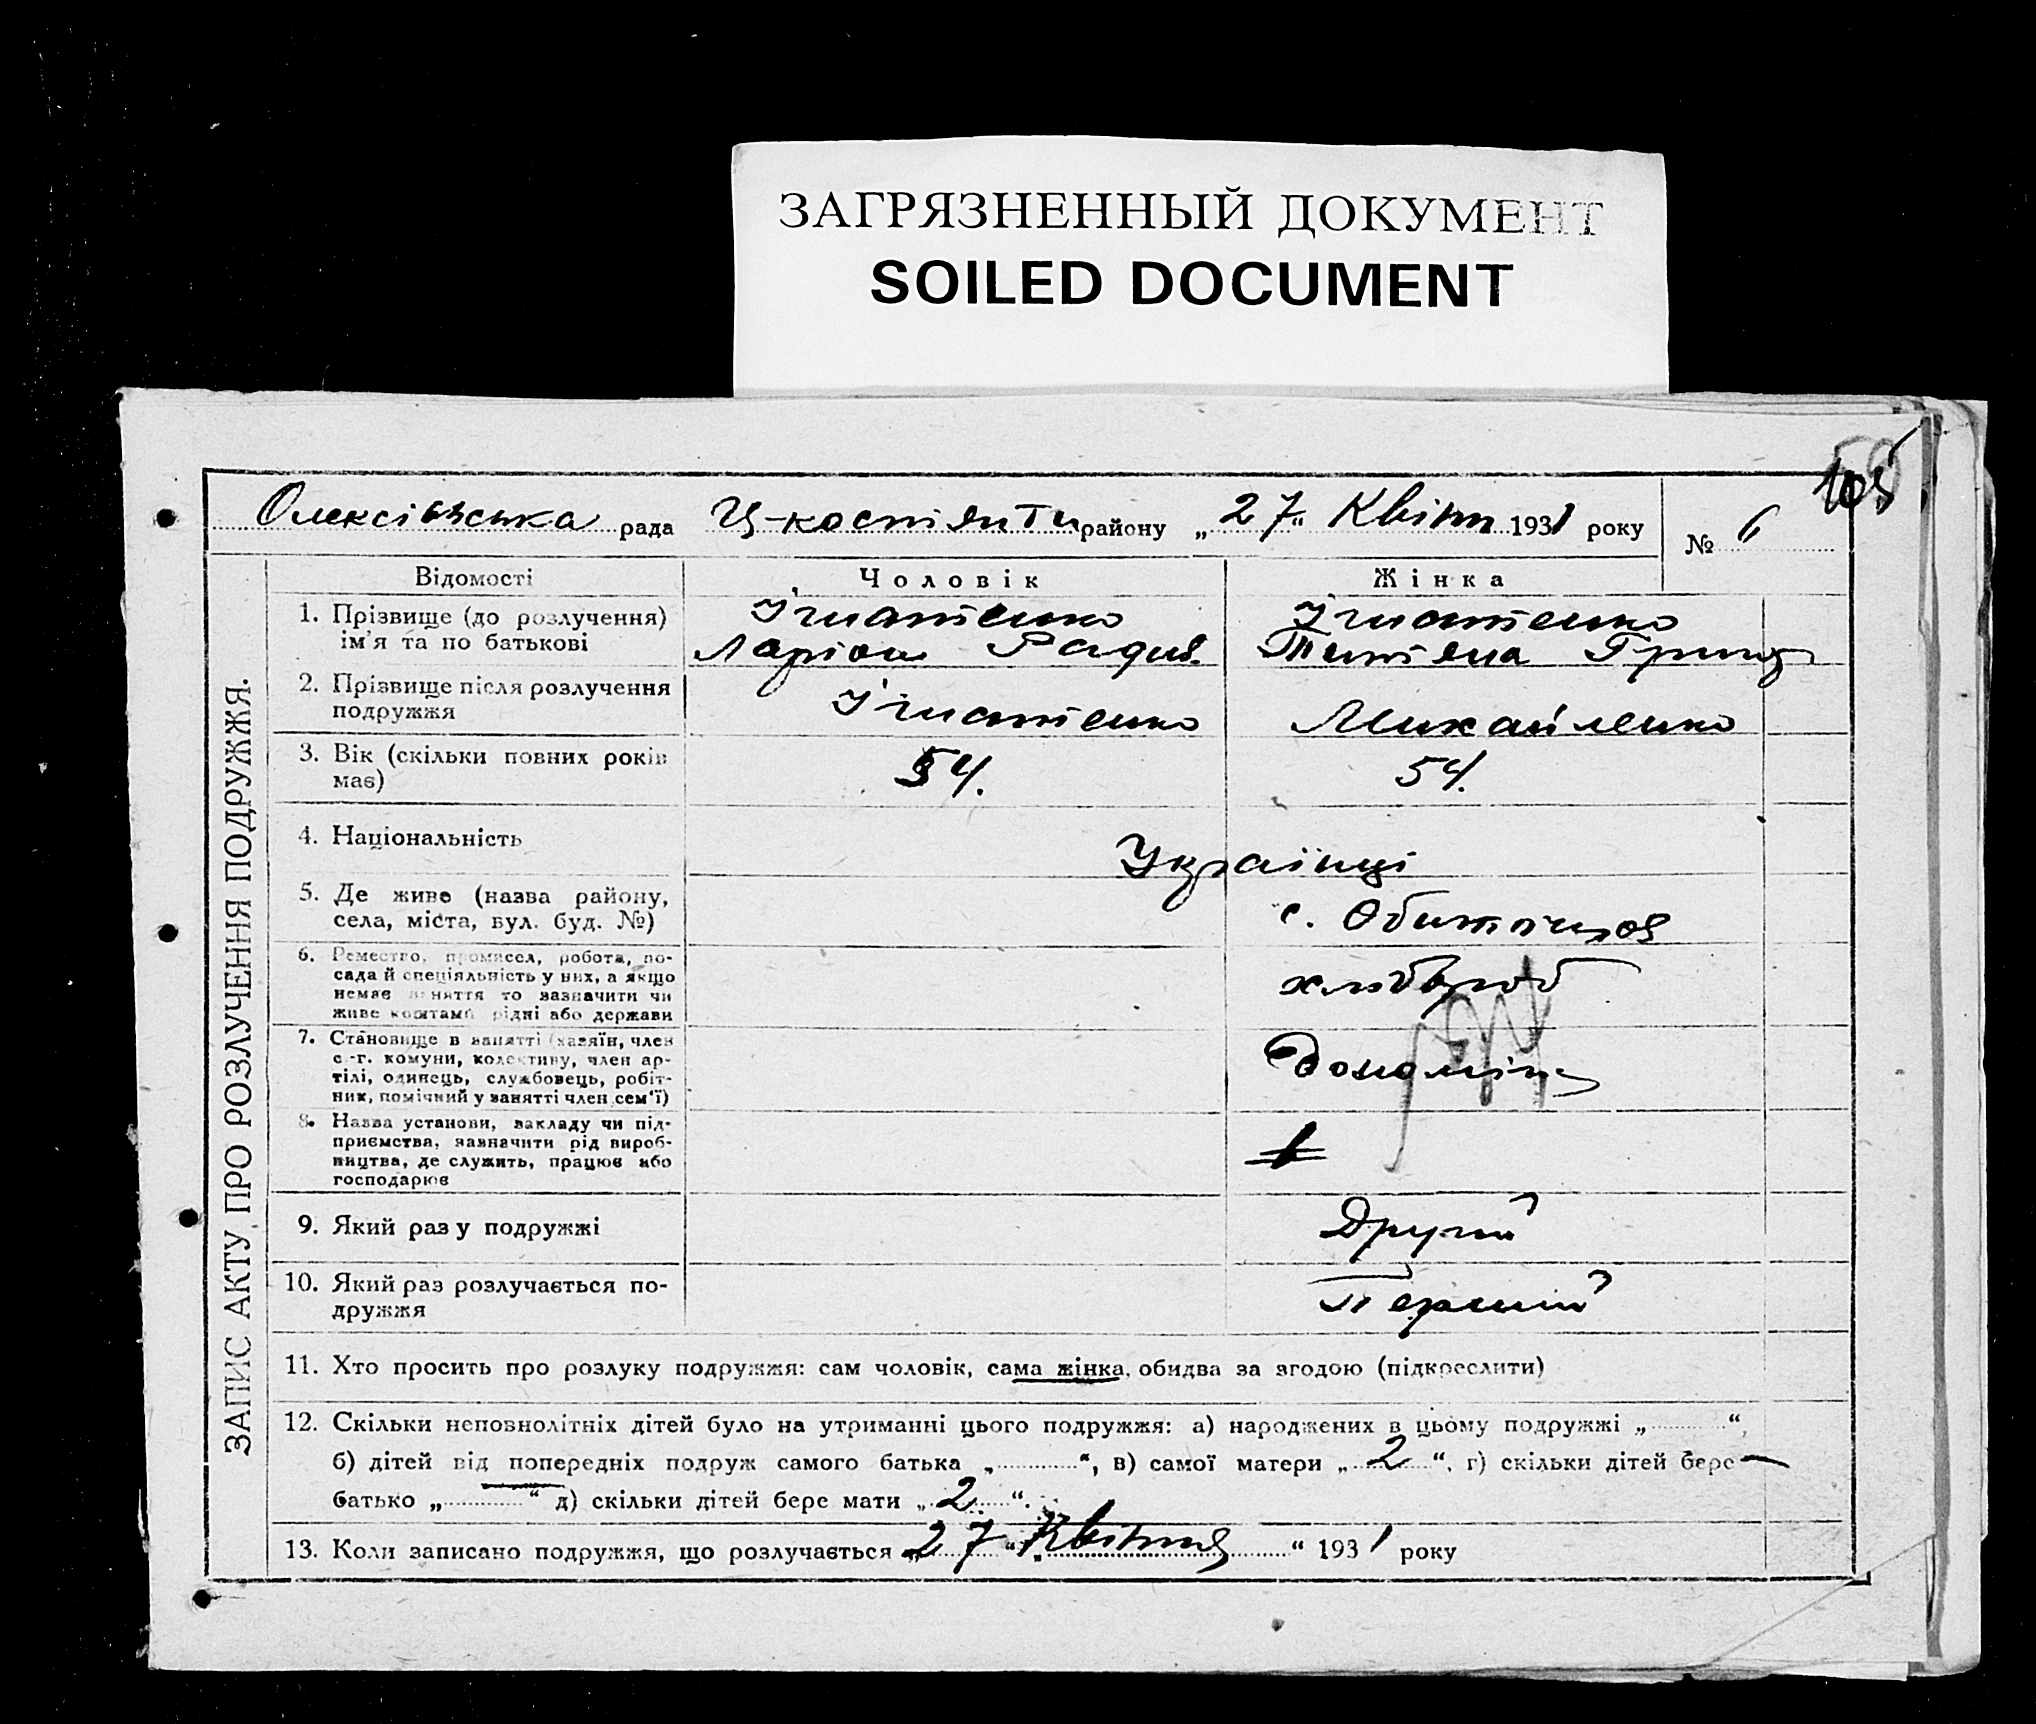 ЗАГРЯЗНЕННЫЙ ДОКУМЕНТ
SOILED DOCUMENT
105
Олексіївська рада Ц-костянти району „27“ Квітн 1931 року № 6
ЗАПИС АКТУ ПРО РОЗЛУЧЕННЯ ПОДРУЖЖЯ.
Відомості Чоловік Жінка
1. Прізвище (до розлучення) Ігнатенко Ігнатенко
ім'я та по батькові Ларіон Радив. Титяна Григ
2. Прізвище після розлучення Ігнатенко Михайленко
подружжя
3. Вік (скільки повних років 54. 54.
має)
4. Національність Українці
5. Де живе (назва району,
села, міста, вул. буд. №) с.
6. Ремество, промисел, робота, по-
сада й спеціяльність у них, а якщо хлібороб
немає заняття то зазначити чи
живе коштами рідні або держави
7. Становище в занятті (хазяїн, член
с.-г. комуни, колективу, член ар-
тілі, одинець, службовець, робіт-
ник, помічний у занятті член сем'ї)
8. Назва установи, закладу чи під-
приємства, зазначити рід вироб-
ництва, де служить, працює або
господарює
9. Який раз у подружжі Другий
10. Який раз розлучається по- Перший
дружжя
11. Хто просить про розлуку подружжя: сам чоловік, сама жінка, обидва за згодою (підкреслити)
12. Скільки неповнолітніх дітей було на утриманні цього подружжя: а) народжених в цьому подружжі „ “,
б) дітей від попередніх подруж самого батька „ “, в) самої матери „ 2 “, г) скільки дітей бере —
батько „ — “ д) скільки дітей бере мати „ 2 “.
13. Коли записано подружжя, що розлучається „27“ „Квітня“ 1931 року